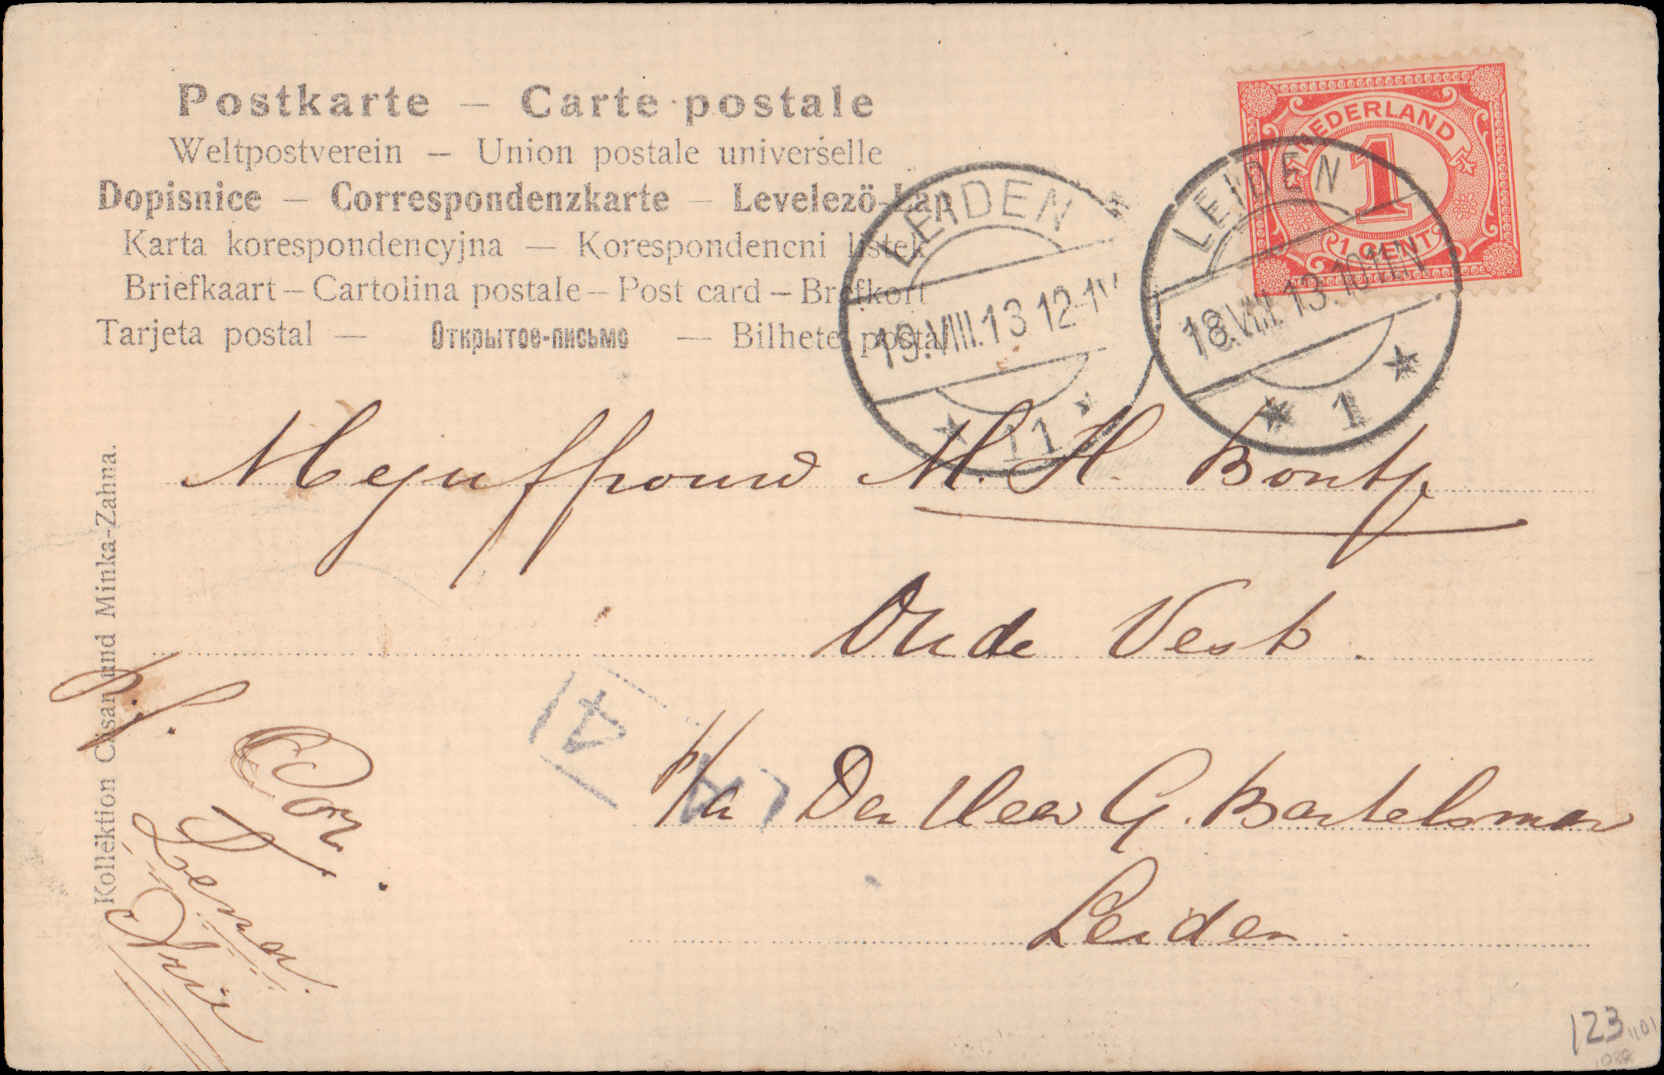 Postkarte — Carte postale
Weltpostverein — Union postale universelle
Dopisnice — Correspondenzkarte — Levelezö-Lap
Karta korespondencyjna — Korespondencni listek
Briefkaart — Cartolina postale — Post card — Brefkort
Tarjeta postal — Открытое-письмо — Bilhete postal
NEDERLAND
1
1 CENT
LEIDEN
19.VIII.13 12-1V
* 11 *
LEIDEN
18.VIII.13.10-11N
* 1 *
Mejuffrouw M. H. Bontje
Oude Vest.
p/a Den Heer G. Bartelsman
Leiden
4
4
Cor.
Lena.
Arie
Kollektion Cäsar und Minka-Zahna.
123